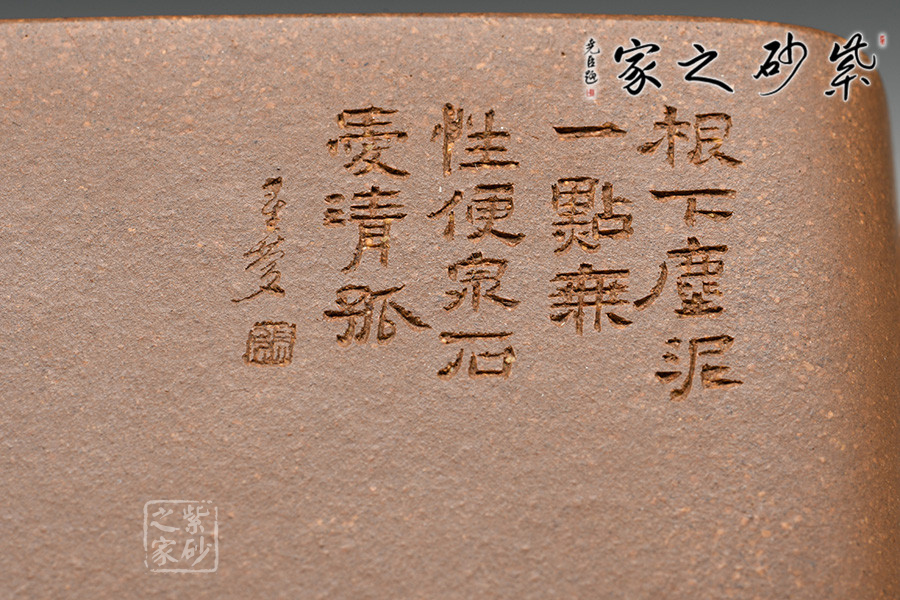 紫砂之家
根下塵泥
一點無
性便泉石
愛清孤
紫砂
之家